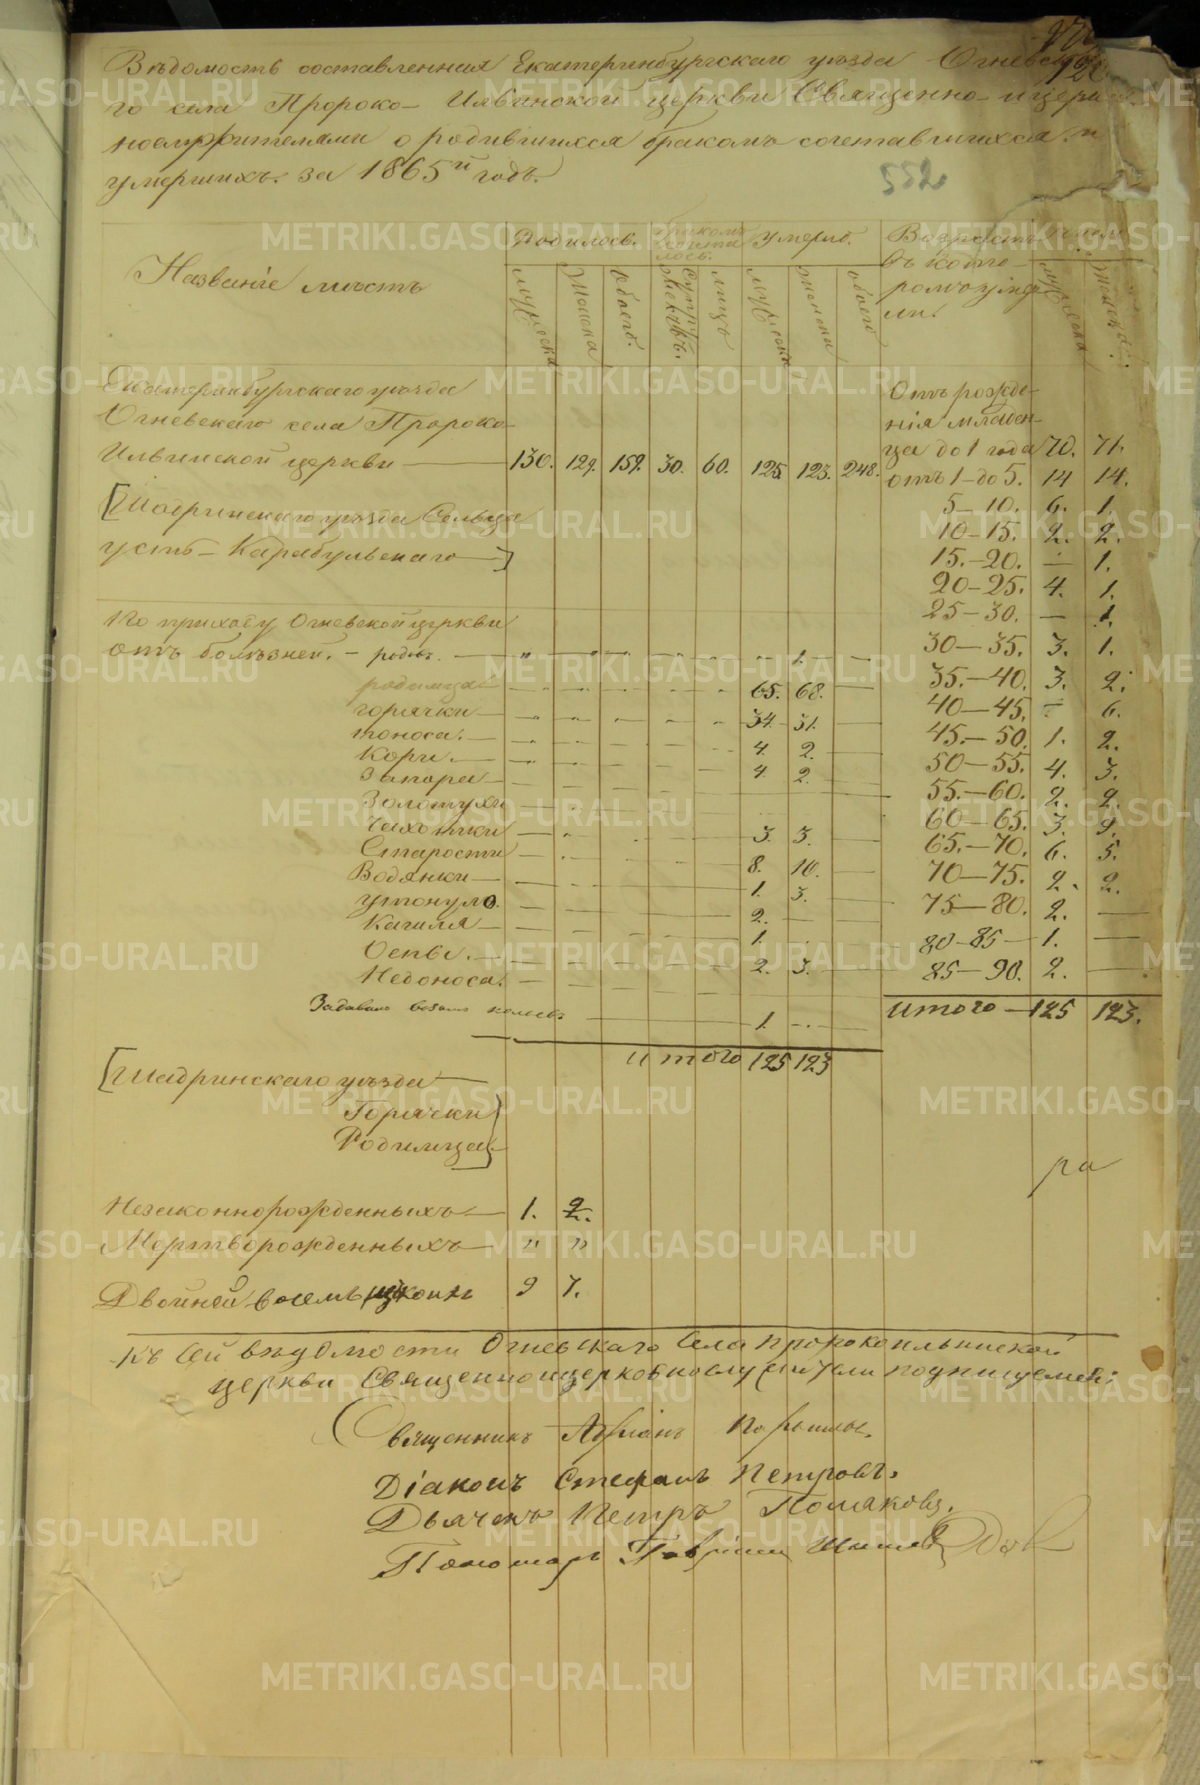 Вѣдомость составленная Екатеринбургскаго уѣзда Огневска
го села Пророко- Ильинской церкви Священно- и церков
нослужителями о родившихся бракомъ сочетавшихся. и
умершихъ. за 1865й годъ.
Названіе мѣстъ
Родилось.
бракомъ сочета лось.
Умерло.
Возрастъ въ кото ромъ умер ли.
мужеска
Женска
Обоего.
Супру жествъ.
лицъ
мужеска
женска
обоего
мужеска
Женска.
Екатеринбургскаго уѣзда
Огневскаго села Пророко-
Ильинской церкви — 130. 129. 159. 30. 60. 125. 123. 248.
[Шадринскаго уѣзда Сельца
усть- Карабульскаго]
По приходу Огневской церкви
отъ болѣзней. - родовъ. — 1.
родимца — 65. 68.
горячки — 34. 31.
поноса. — 4. 2.
Кори. — 4. 2.
Запора —
Золотухи
Чахотки — 3. 3.
Старости — 8. 10.
Водянки — 1. 3.
утонуло. 2. —
Кашля — 1.
Оспы. — 2. 3.
Недоноса. —
Задавило возомъ — 1. —
итого 125 123
Отъ рожде-
нія младен-
ца до 1 года 70. 71.
отъ 1-до 5. 14 14.
5-10. 6. 1.
10-15. 2. 2.
15.-20. — 1.
20-25. 4. 1.
25-30. — 1.
30-35. 3. 1.
35.-40. 3. 2.
40-45. — 6.
45.-50. 1. 2.
50-55. 4. 3.
55.-60. 2. 2.
60-65. 3. 9.
65.-70. 6. 5.
70-75. 2. 2.
75-80. 2. —
80-85 — 1. —
85-90. 2. —
Итого — 125 123.
[Шадринскаго уѣзда
Горячки
Родимца]
Незаконнорожденныхъ — 1. 2.
Мертворожденныхъ — " "
Двойней восемь 9 7.
Къ сей вѣдомости Огневскаго села пророкоильинской
церкви Священноицерковнослужители подписуемся:
Священникъ
Діаконъ Стефанъ Петровъ.
Дьячекъ Петръ Поляковъ.
Пономарь Гавріилъ
METRIKI.GASO-URAL.RU